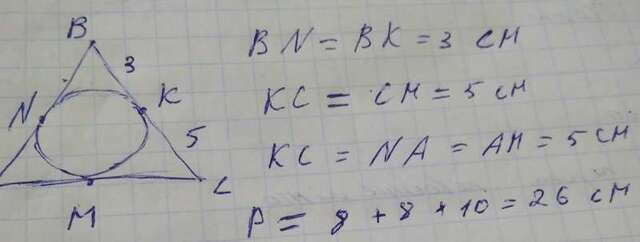 B
3
N
K
5
C
M
BN = BK = 3 см
KC = CM = 5 см
KC = NA = AM = 5 см
P = 8 + 8 + 10 = 26 см